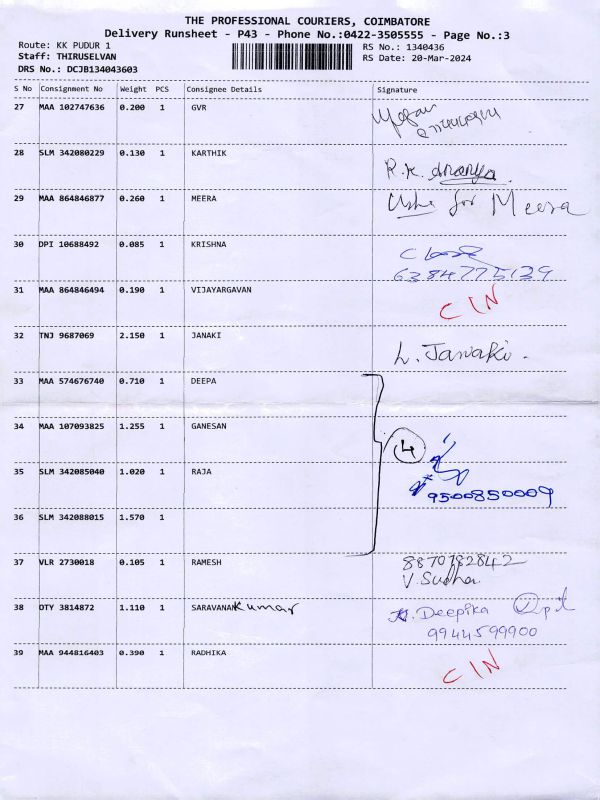 THE PROFESSIONAL COURIERS, COIMBATORE
Delivery Runsheet - P43 - Phone No.:0422-3505555 - Page No.:3
Route: KK PUDUR 1
RS No.: 1340436
Staff: THIRUSELVAN
RS Date: 20-Mar-2024
DRS No.: DCJB134043603
S No Consignment No Weight PCS Consignee Details Signature
27 MAA 102747636 0.200 1 GVR
28 SLM 342080229 0.130 1 KARTHIK R.K. ananya
29 MAA 864846877 0.260 1 MEERA Usha for Meera
30 DPI 10688492 0.085 1 KRISHNA
6384775139
31 MAA 864846494 0.190 1 VIJAYARGAVAN CIN
32 TNJ 9687069 2.150 1 JANAKI L. Janaki.
33 MAA 574676740 0.710 1 DEEPA
34 MAA 107093825 1.255 1 GANESAN 4
35 SLM 342085040 1.020 1 RAJA 9500850009
36 SLM 342088015 1.570 1
37 VLR 2730018 0.105 1 RAMESH 8870782842
V. Sudha
38 DTY 3814872 1.110 1 SARAVANAKumar Deepika
9944599900
39 MAA 944816403 0.390 1 RADHIKA CIN